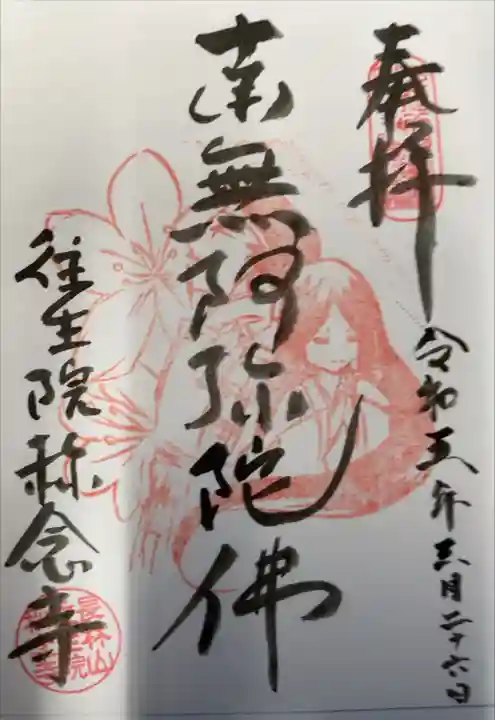 奉拝
令和五年三月二十六日
南無阿弥陀佛
往生院称念寺
長林山